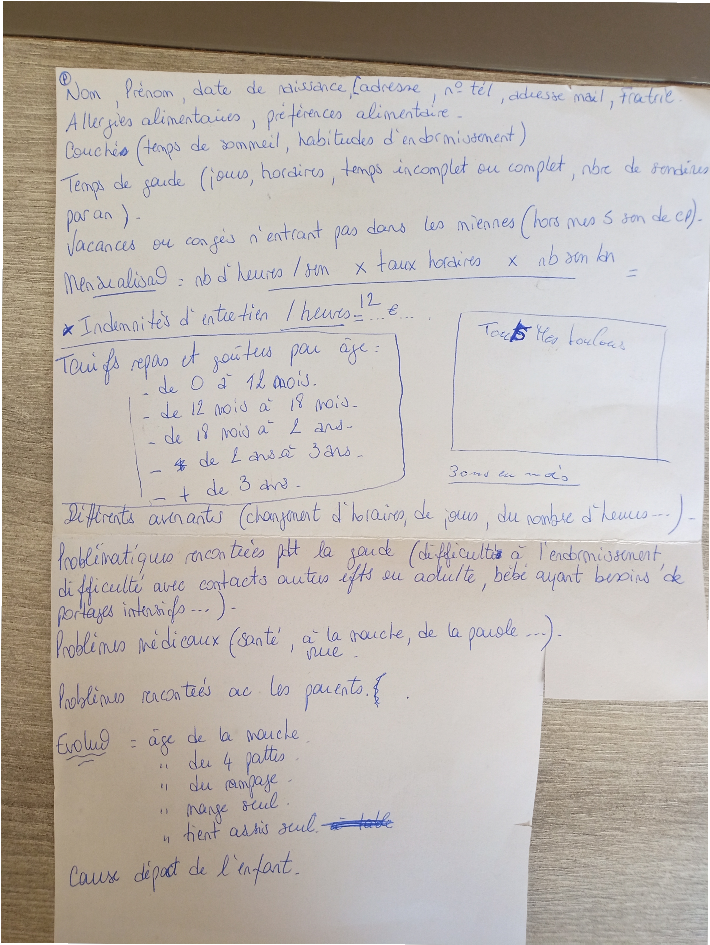 Nom, Prénom, date de naissance, adresse, n° tél, adresse mail, Fratrie.
Allergies alimentaires, préférences alimentaire.
Couches (temps de sommeil, habitudes d'endormissement)
Temps de garde (jours, horaires, temps incomplet ou complet, nbre de semaines
par an).
Vacances ou congés n'entrant pas dans les miennes (hors mes 5 sem de CP).
Mensualisa° = nb d'heures / sem x taux horaires x nb sem
=
* Indemnités d'entretien / heures = ... € ...
12
Tarifs repas et goûters par âge :
- de 0 à 12 mois.
- de 12 mois à 18 mois.
- de 18 mois à 2 ans.
- de 2 ans à 3 ans.
- + de 3 ans.
3 ans en mois
Différents avenants (changement d'horaires, de jours, du nombre d'heures ...).
Problématiques rencontrées pdt la garde (difficultés à l'endormissement,
difficulté avec contacts autres efts ou adulte, bébé ayant besoins de
portages intensifs ...).
Problèmes médicaux (santé, à la marche, de la parole ...).
vue
Problèmes rencontrés ac les parents.
Evolu° = âge de la marche.
" du 4 pattes.
" du rampage.
" mange seul.
" tient assis seul.
Cause départ de l'enfant.